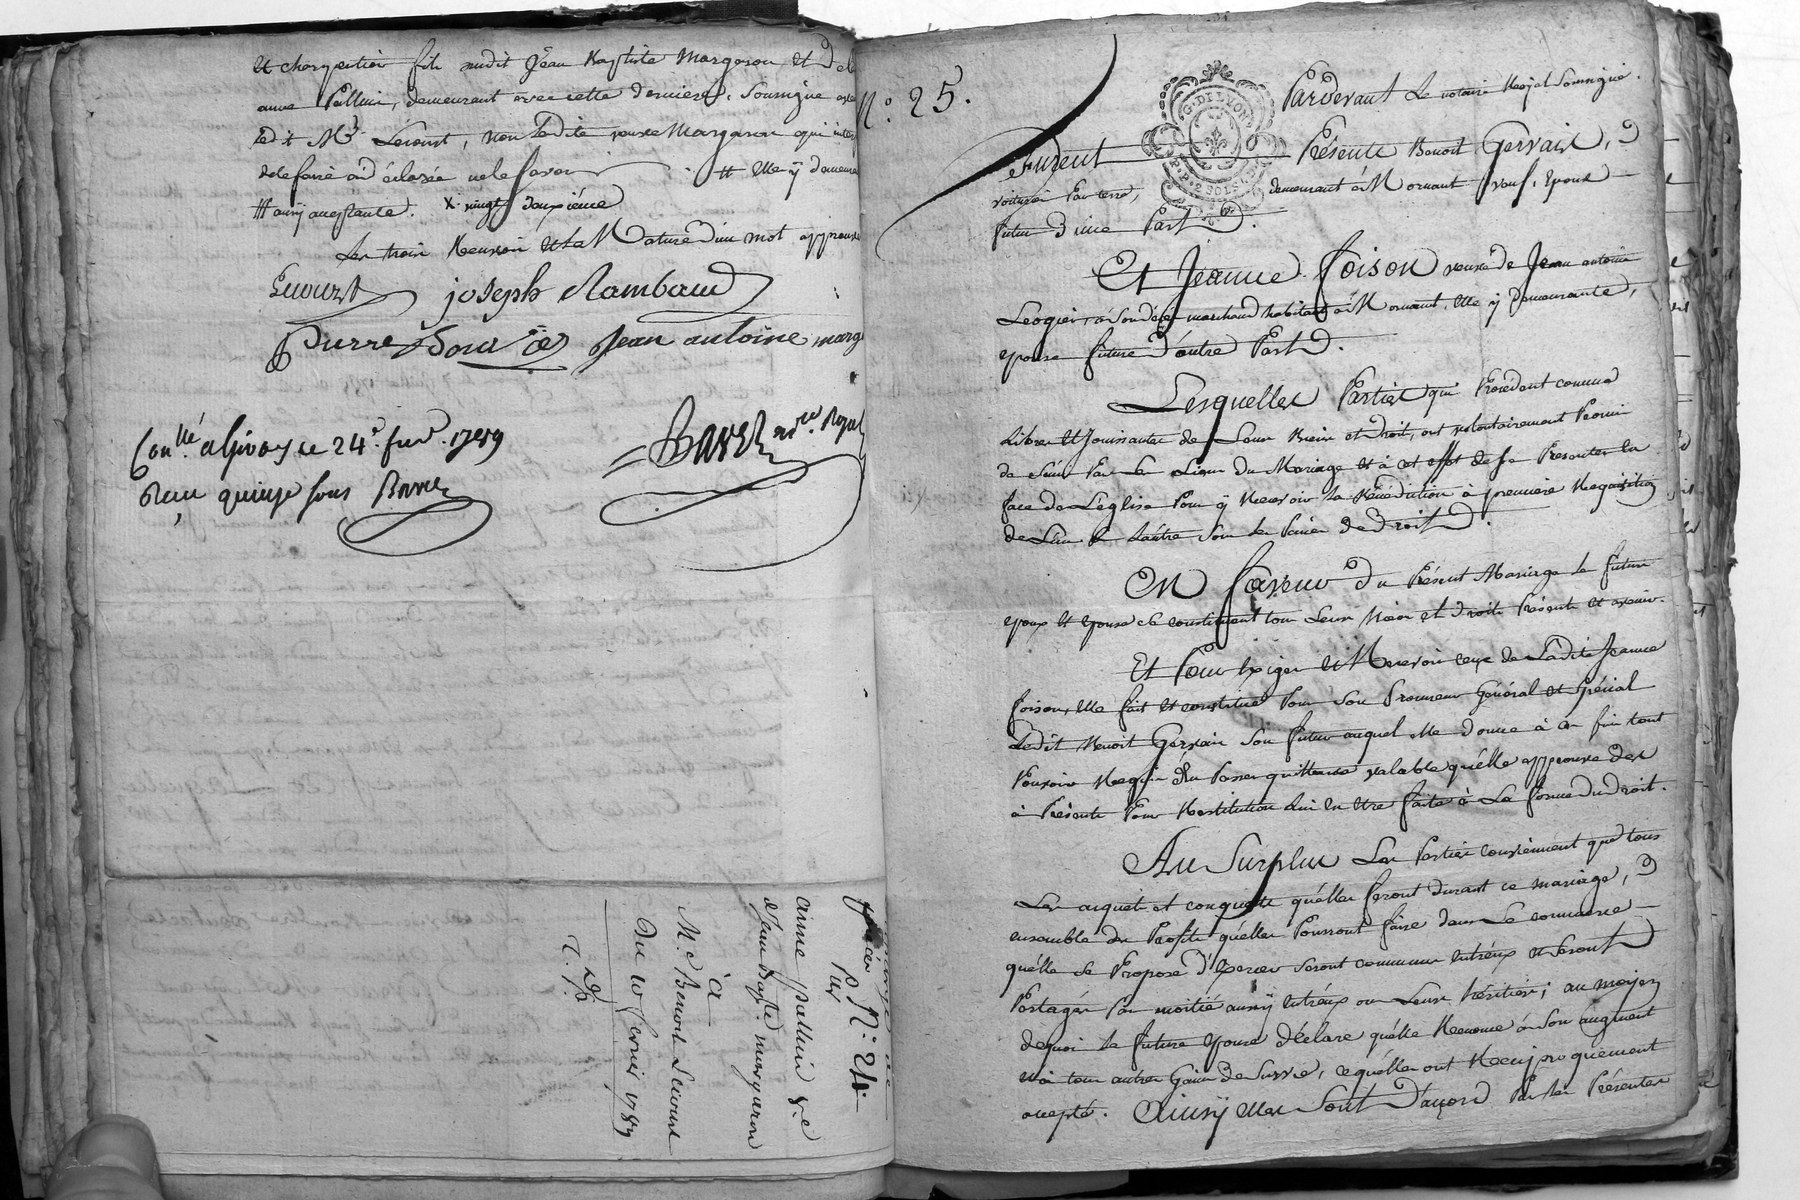 et charpentier fils dudit Jean Baptiste Margaron et de
anne Palluis, demeurant avec cette derniere, Soussigné avec
ledit Mr Lecourt, non ladite veuve Margaron qui
de le faire a déclarée ne le savoir # elle y demeurant
# aussy acceptante. X vingt deuxième
Les trois Renvois et la Rature d'un mot approuvés
Lecourt joseph Rambaud
Pierre jean antoine marg
Conllé a Givors ce 24e fevr. 1789
Reçu quinze sous
nre Royal
N.° 24.
anne palluis Ve
Jean Bapte margaron
à
Mr Benoit Lecourt
Du 10 fevrier 1789
N.° 25.
G. DE LYON
2 SOLS
Pardevant Le notaire Royal Soussigné.
Furent Présents Benoit Gervais,
voiturier Par terre, demeurant à Mornant veuf, Epoux
futur d'une Part.
Et Jeanne foison veuve de Jean antoine
Leogier, à Son décès marchand habitant à Mornant, elle y demeurante,
epouse future d'autre Part.
Lesquelles Parties qui Procédant comme
Libres et Jouissantes de Leurs Biens et droits, ont volontairement Promis
de S'unir Par Le Lien du Mariage et à cet effet de se Presenter en
face de L'eglise Pour y Recevoir la Bénédiction à première Requisition
de L'un et L'autre Sous les Peines de Droit.
En faveur du Présent Mariage les futurs
epoux et epouse se constituent tous Leurs Biens et droits Présents et avenir.
Et Pour Exiger et Recevoir ceux de Ladite Jeanne
foison, elle fait et constitue Pour Son Procureur Général et Spécial
Ledit Benoit Gervais Son futur auquel elle donne à ces fins tout
Pouvoir Requis d'en Passer quittance valable qu'elle approuve dès
à Présent Pour Restitution lui en etre faite à La forme du droit.
Au Surplus Les Parties conviennent que tous
Les acquets et conquets qu'elles feront durant ce mariage,
ensemble des Profits qu'elles Pourront faire dans Le commerce
qu'elle Se Propose d'Exercer Seront communs entr'eux et Seront
Partagés Par moitié aussy entr'eux ou Leurs héritiers; au moyen
de quoi la future epouse déclare qu'elle Renonce à Son augment
et à tous autres Gains de Survie, ce qu'elles ont Reciproquement
accepté. Ainsy elles Sont D'accord Par les Présentes